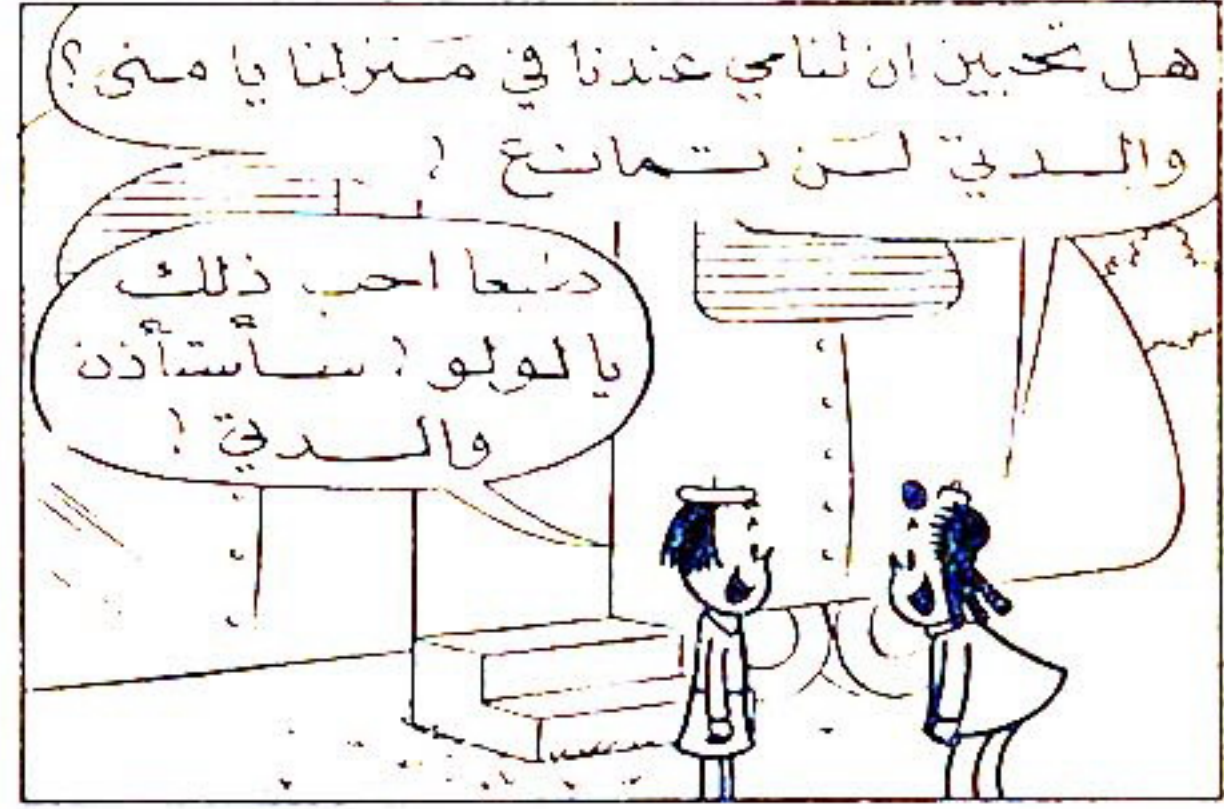 هل تحبين ان تنامي عندنا في منزلنا يا منى؟
والدتي لن تمانع !
طبعا احب ذلك
يا لولو ! سأستأذن
والدتي !